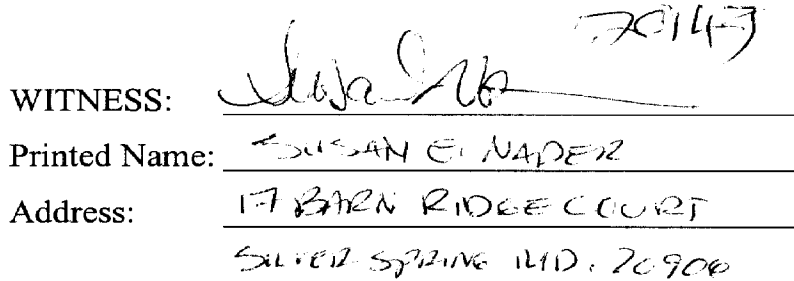 70147
WITNESS:
Printed Name: SUSAN E. NADER
Address: 17 BARN RIDGE COURT
SILVER SPRING MD. 20906